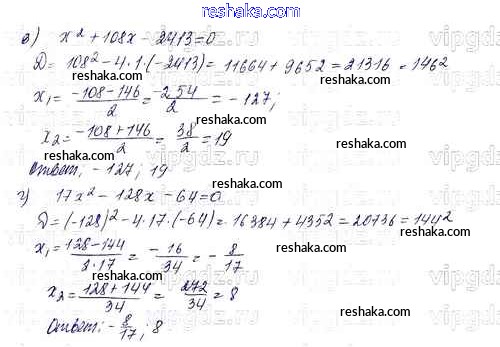 в) x² + 108x - 2413 = 0
Д = 108² - 4·1·(-2413) = 11664 + 9652 = 21316 = 146²
x₁ = (-108-146)/2 = -254/2 = -127;
x₂ = (-108+146)/2 = 38/2 = 19
Ответ: -127; 19
г) 17x² - 128x - 64 = 0
Д = (-128)² - 4·17·(-64) = 16384 + 4352 = 20736 = 144²
x₁ = (128-144)/(2·17) = -16/34 = -8/17
x₂ = (128+144)/34 = 272/34 = 8
Ответ: -8/17; 8
reshaka.com
reshaka.com
reshaka.com
reshaka.com
reshaka.com
reshaka.com
reshaka.com
reshaka.com
reshaka.com
reshaka.com
reshaka.com